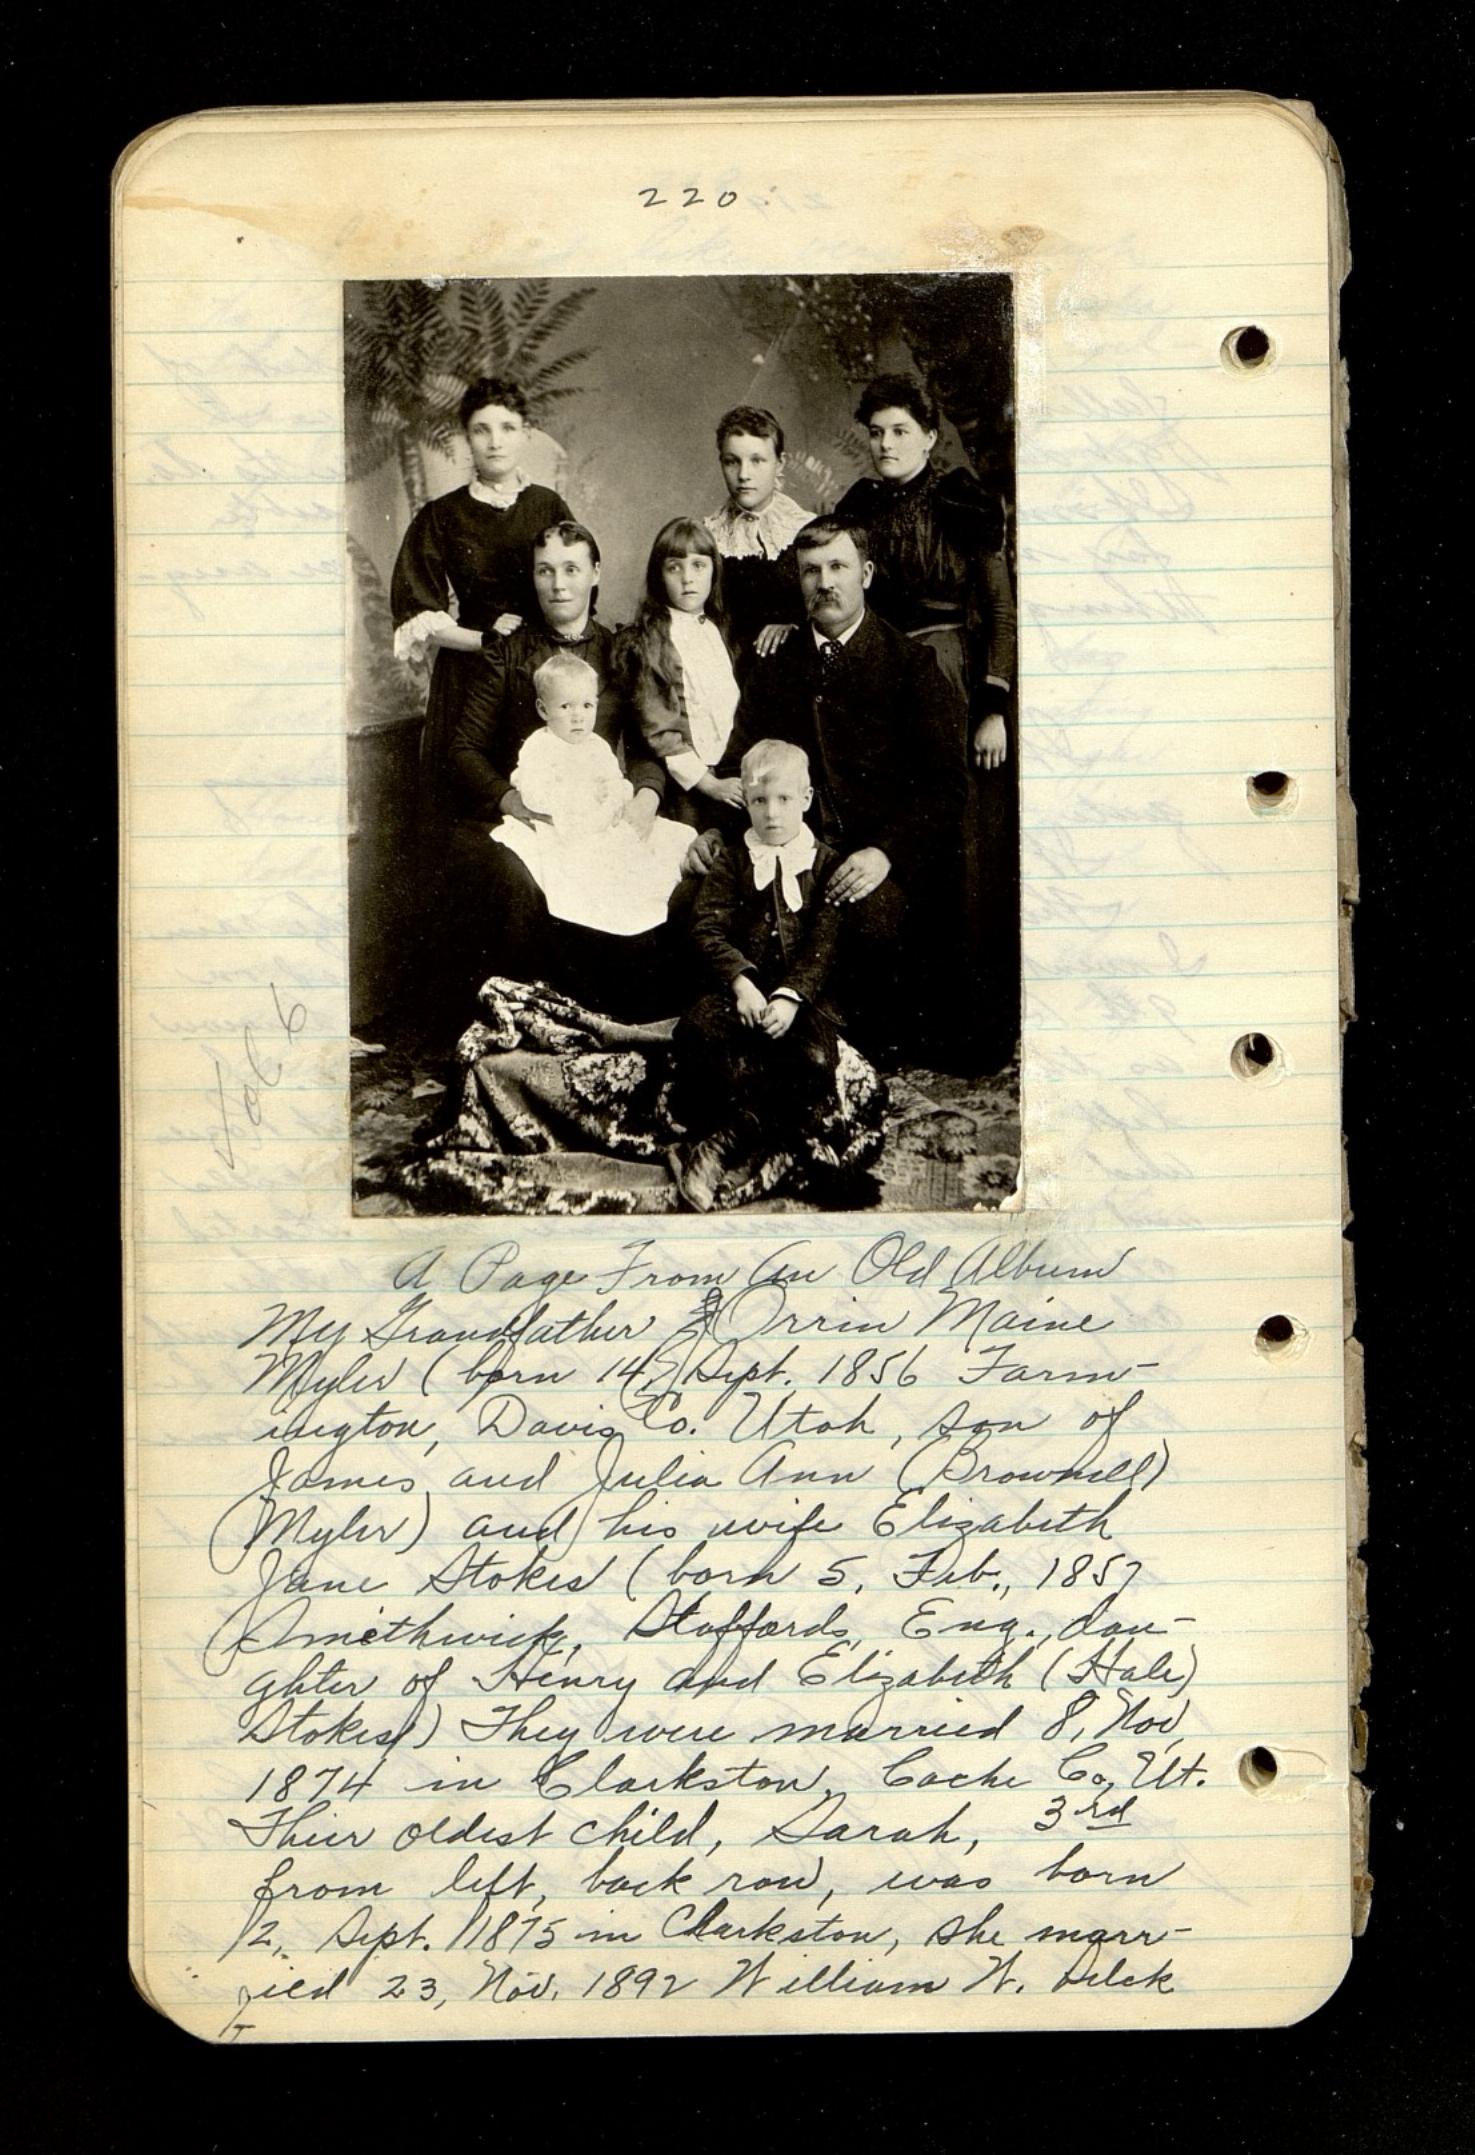 220
Vol 6
A Page From An Old Album
My Grandfather Orrin Maine
Myler (born 14, Sept. 1856 Farm-
ington, Davis Co. Utah, son of
James and Julia Ann (Brownell)
Myler) and his wife Elizabeth
Jane Stokes (born 5, Feb., 1857
Smethwick, Staffords, Eng., dau-
ghter of Henry and Elizabeth (Hale)
Stokes) They were married 8, Nov,
1874 in Clarkston, Cache Co, Ut.
Their oldest child, Sarah, 3rd
from left, back row, was born
12, Sept. 1875 in Clarkston, she marr-
ied 23, Nov. 1892 William W. Selck